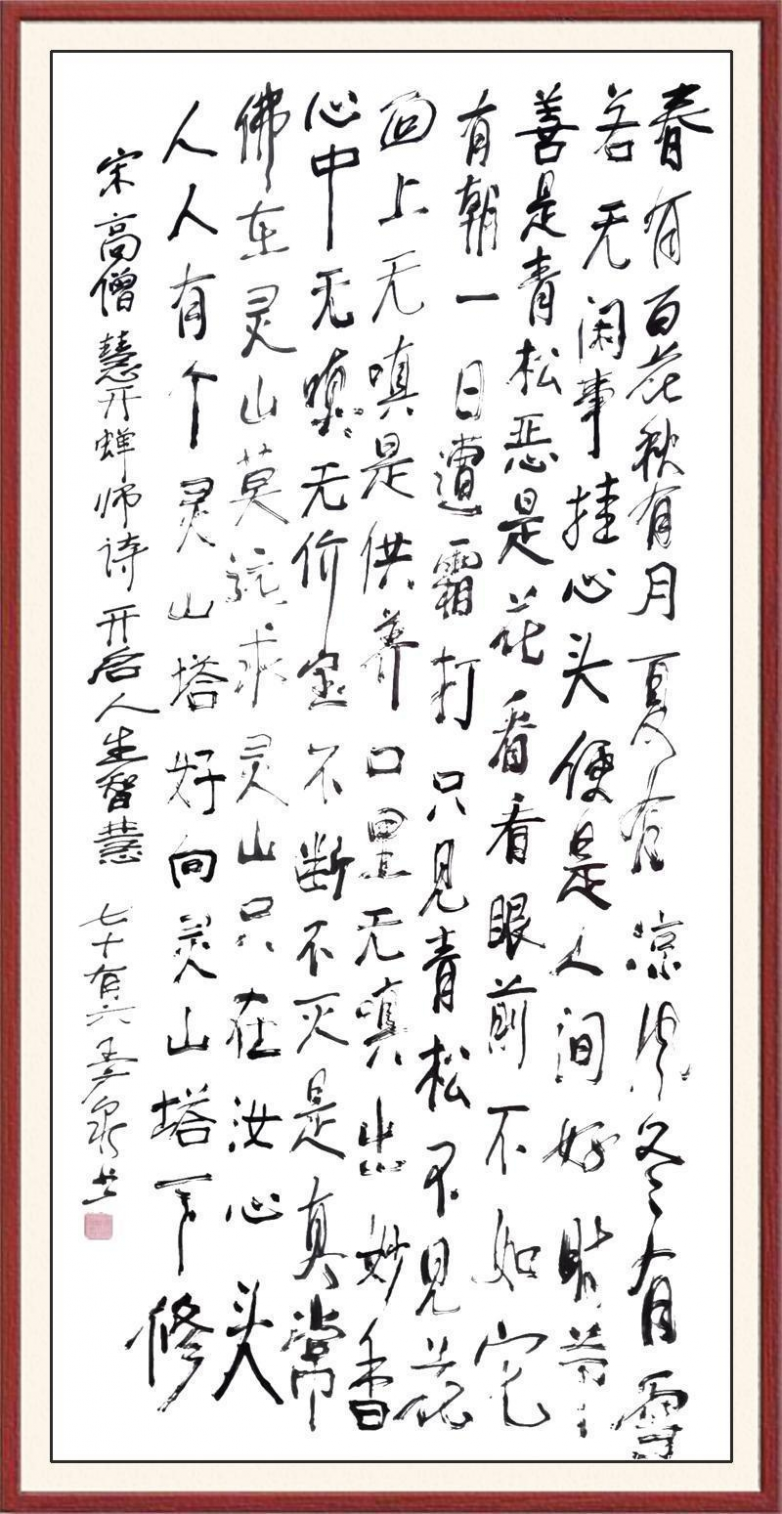 春有百花秋有月夏有凉风冬有雪
若无闲事挂心头便是人间好时节
善是青松恶是花看看眼前不如它
有朝一日遭霜打只见青松不见花
面上无嗔是供养口里无嗔出妙香
心中无嗔无价宝不断不灭是真常
佛在灵山莫远求灵山只在汝心头
人人有个灵山塔好向灵山塔下修
宋高僧慧开蝉师诗开启人生智慧 七十有六泉书